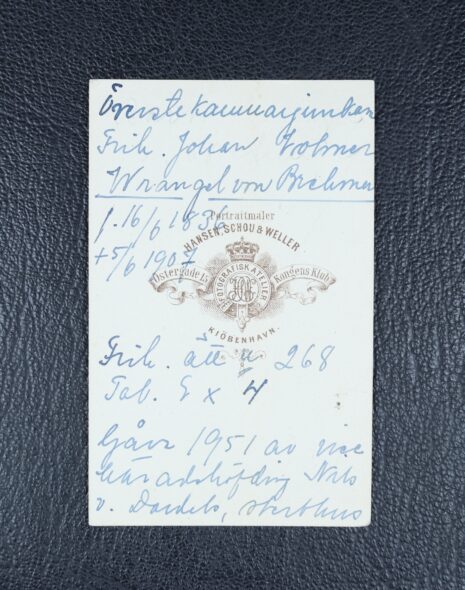 Överstekammarjunkaren
Frih. Johan Volmer
Wrangel von Brehmer
f. 16/6 1836
+ 5/6 1907
Portraitmaler
HANSEN, SCHOU & WELLER
Østergade 15 Kongens Klub
FOTOGRAFISK ATELIER
KIÖBENHAVN.
Frih. ätt n 268
Tab. E x 4
Gåva 1951 av vice
häradshöfding Nils
v. Dardels, sterbhus